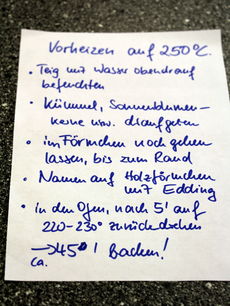 Vorheizen auf 250°C.
• Teig mit Wasser obendrauf
befeuchten
• Kümmel, Sonnenblumen-
kerne usw. draufgeben
• im Förmchen noch gehen
lassen, bis zum Rand
• Namen auf Holzförmchen
mit Edding
• in den Ofen, nach 5' auf
220-230° zurückdrehen
→ 45' Backen!
ca.